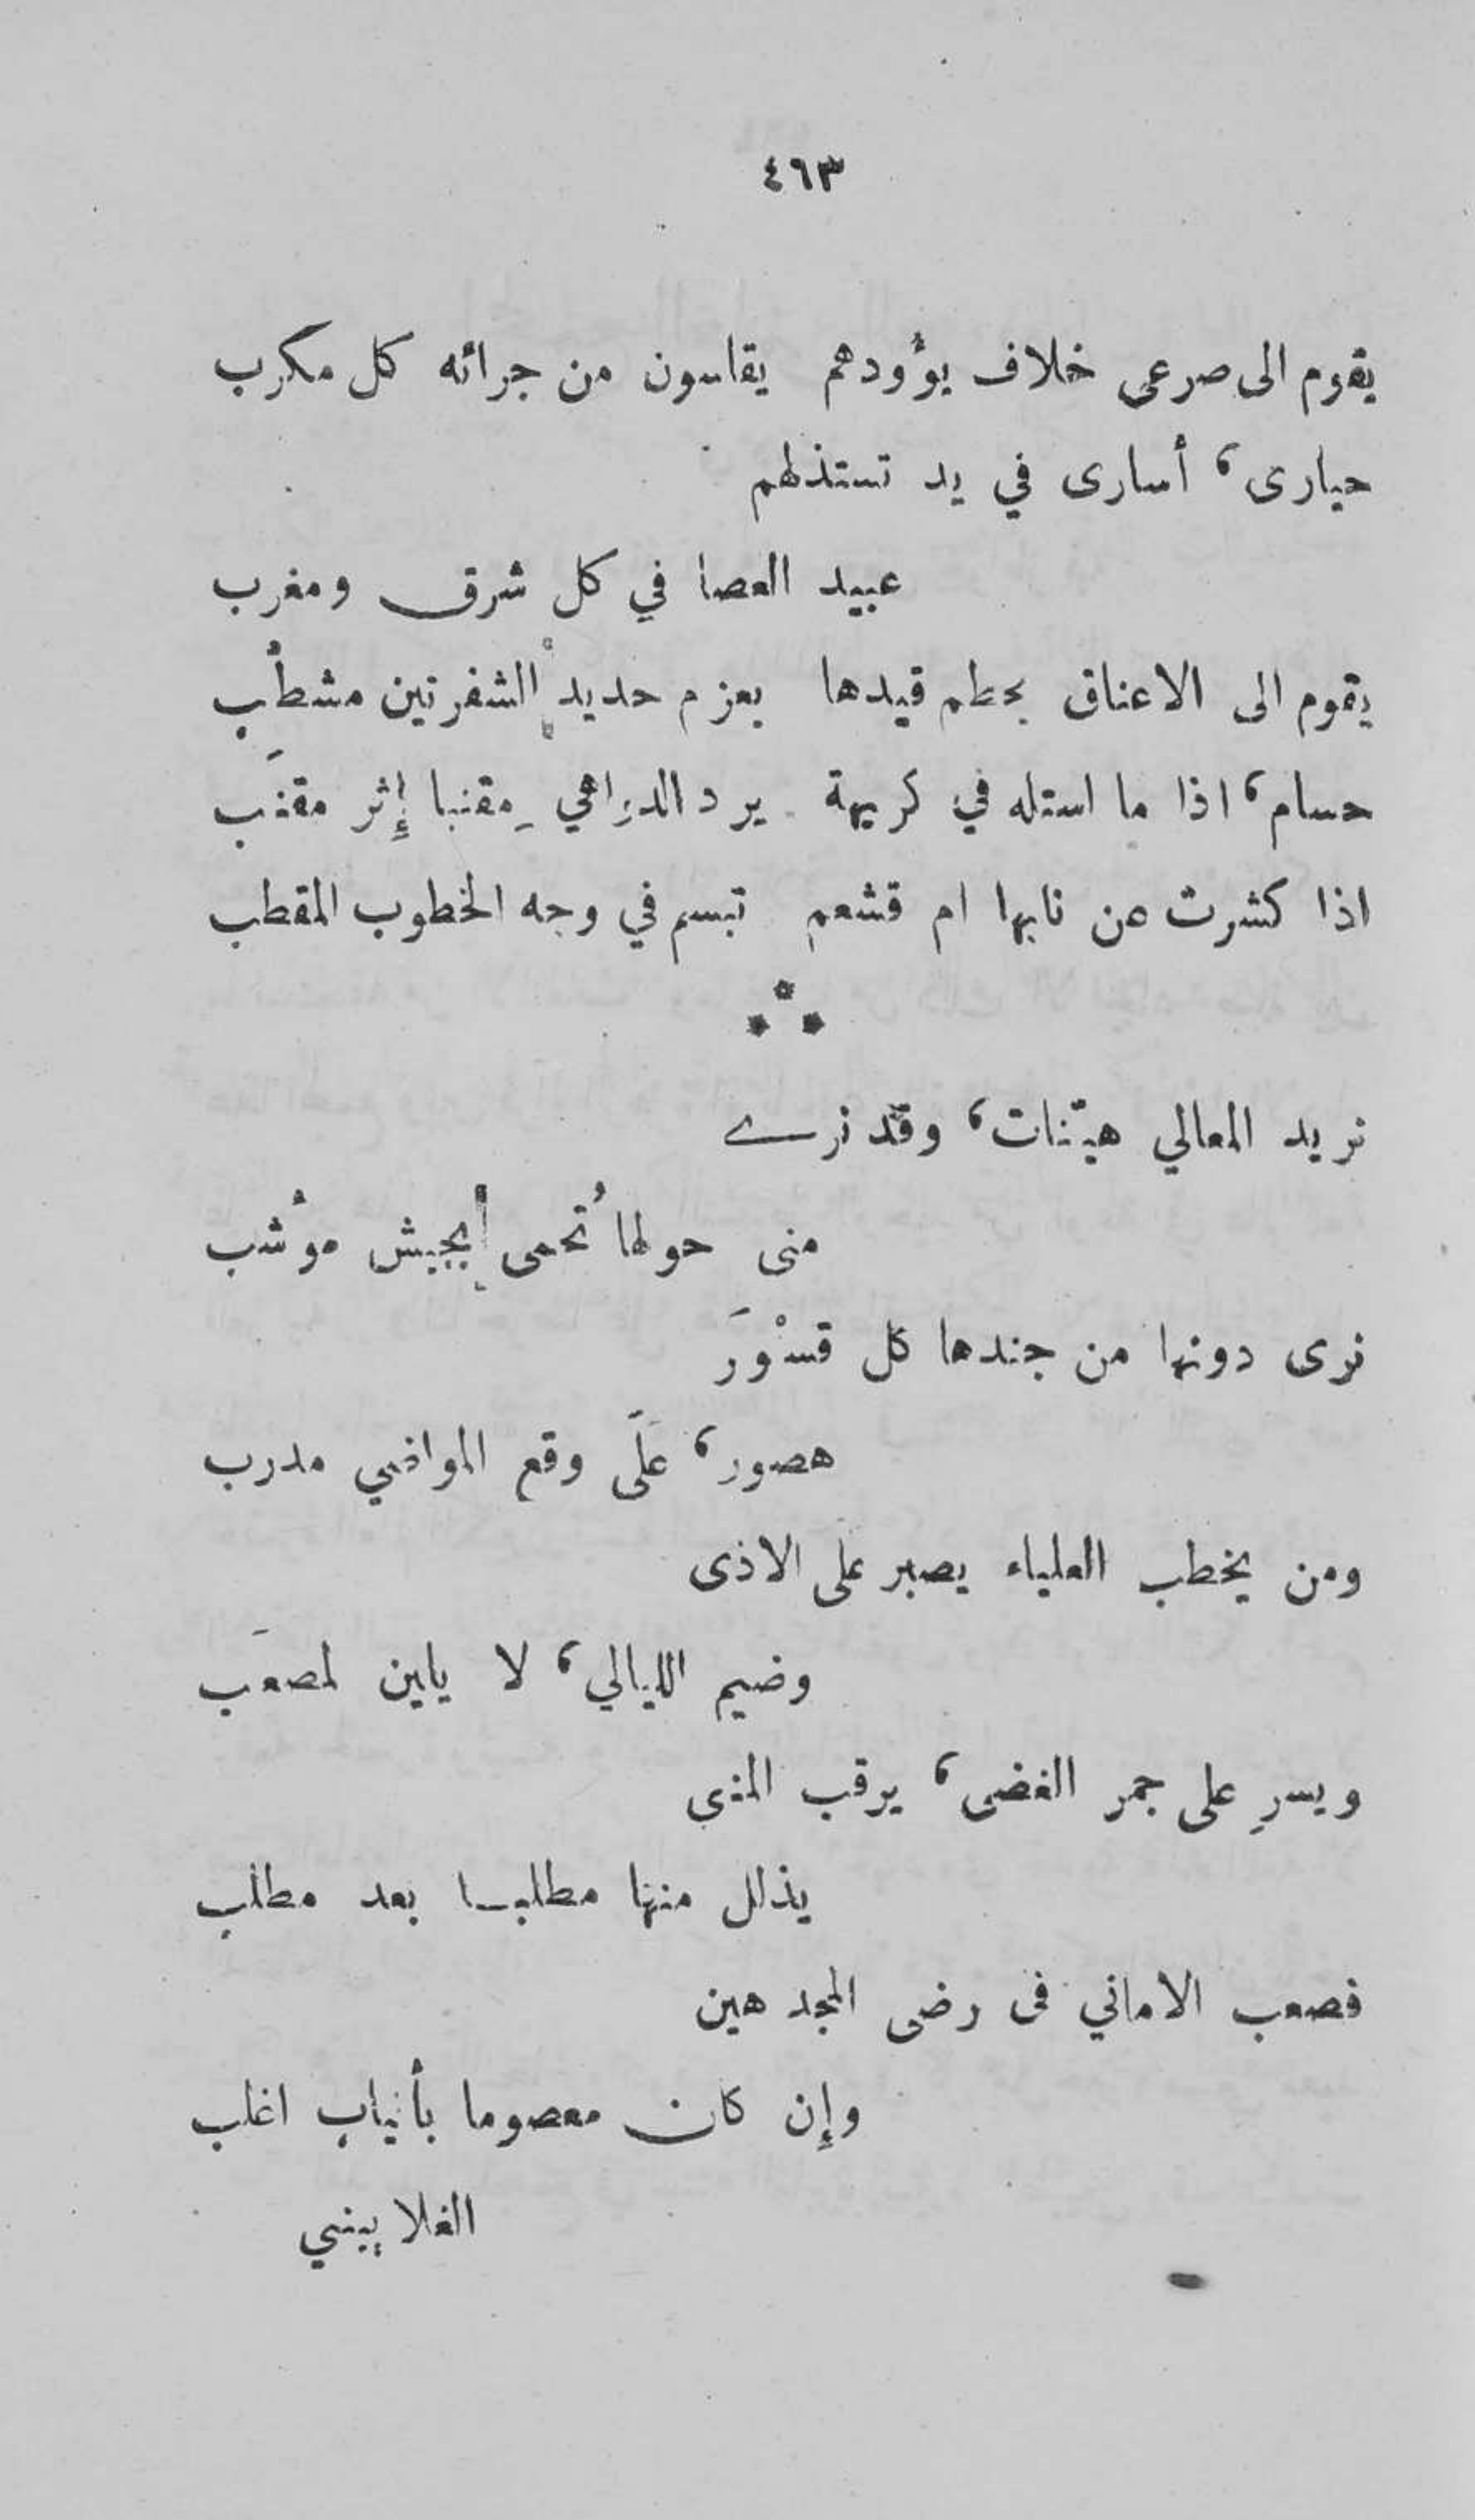 ٤٦٣
يقوم الى صرعى خلاف يؤُودهم يقاسون من جرائه كل مكرب
حيارى، أسارى في يد تستذلهم
عبيد العصا في كل شرق ومغرب
يقوم الى الاعناق يحطم قيدها بعزم حديد الشفرتين مشطَّب
حسام، اذا ما استله في كريهة يرد الدواهي مِقنبا إِثر مقنَب
اذا كشرت عن نابها ام قشعم تبسم في وجه الخطوب المقطب
نريد المعالي هيّنات، وقد نرى
منى حولها تُحمى بجيش مؤُشب
نرى دونها من جندها كل قسْوَر
هصور، عَلَى وقع المواضي مدرب
ومن يخطب العلياء يصبر على الاذى
وضيم الليالي، لا يلين لمصعَب
ويسرِ على جمر الغضى، يرقب المنى
يذلل منها مطلبا بعد مطلب
فصعب الاماني في رضى المجد هين
وإِن كان معصوما بأنياب اغلب
الغلاييني